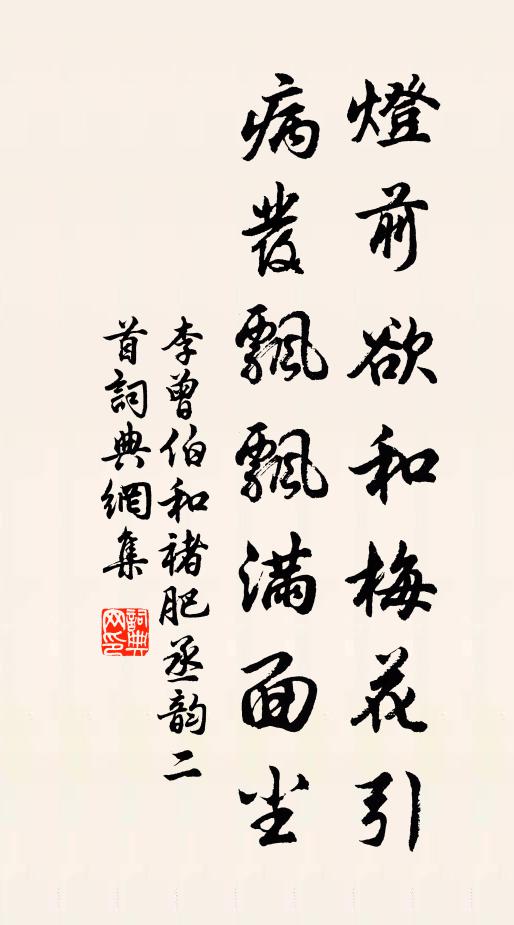 燈前欲和梅花引
病發飄飄滿面尘
李曾伯和褚肥丞韵二
首詞典網集
詞典网印